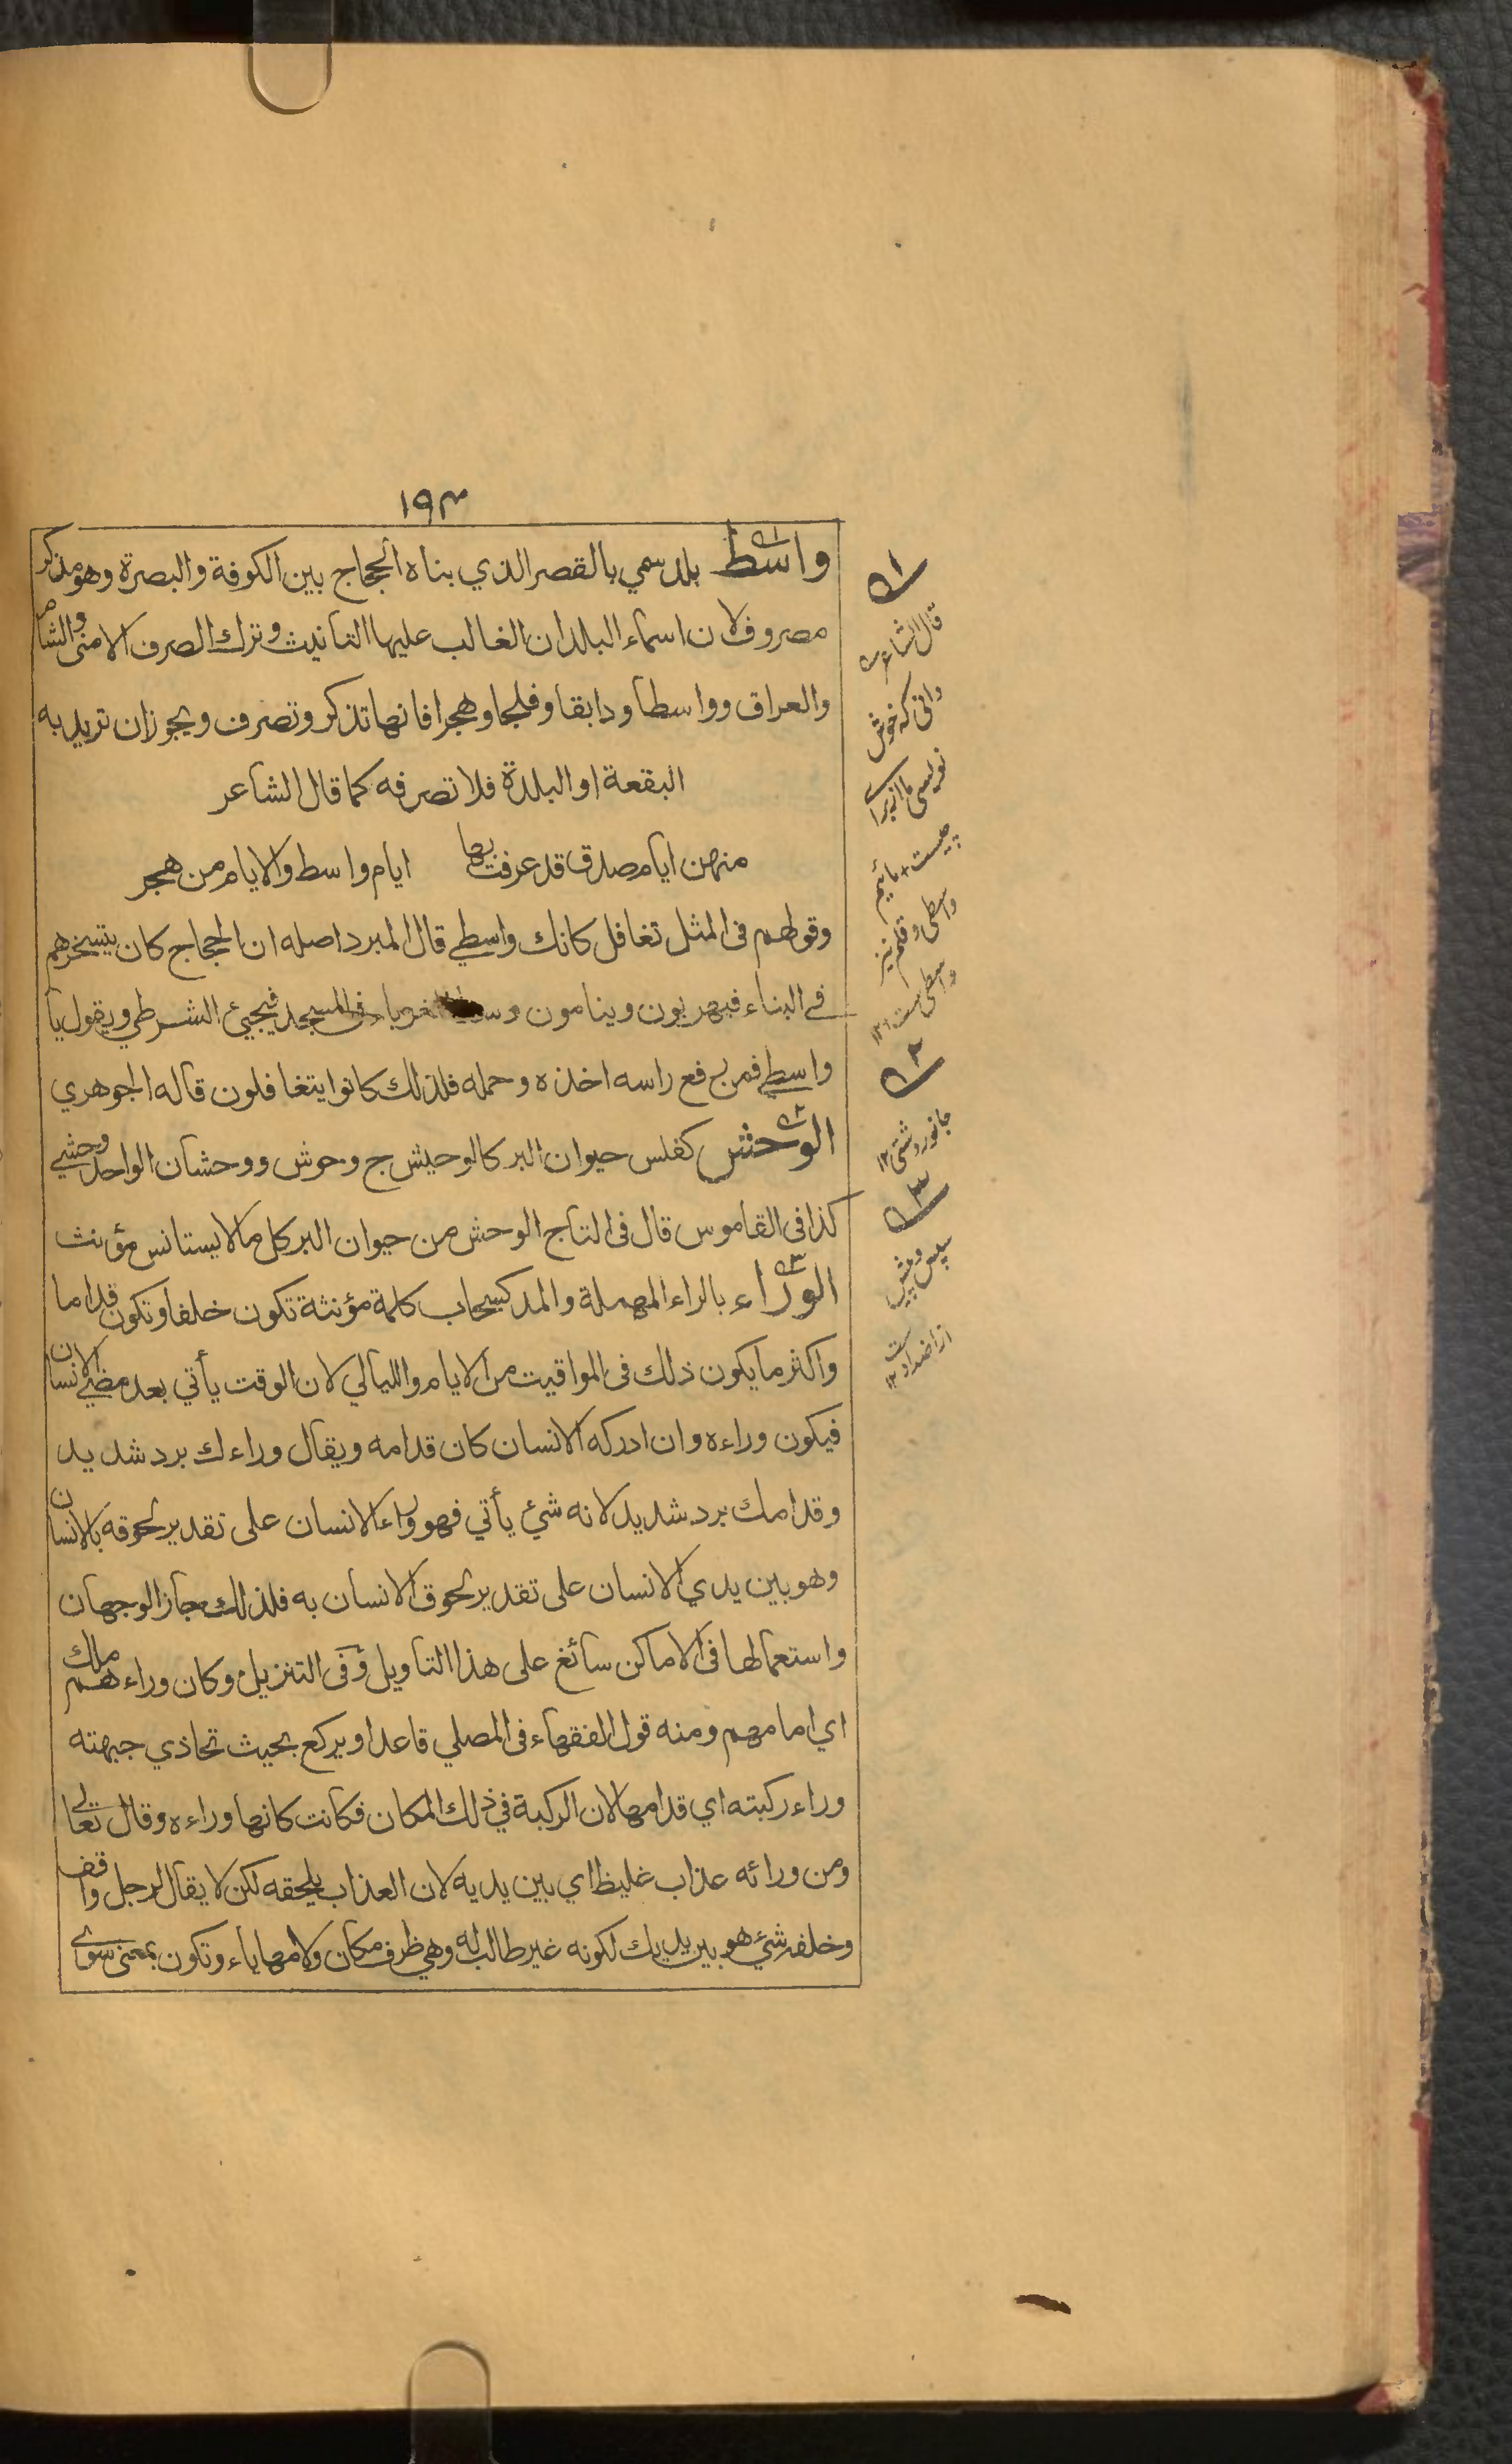 ١٩٣
واسط بلد سمي بالقصر الذي بناه الحجاج بين الكوفة والبصرة وهو مذكر
مصروف لان اسماء البلدان الغالب عليها التانيث وترك الصرف الا منى والشام
والعراق وواسطا ودابقا وفلجا وهجرا فانها تذكر وتصرف ويجوز ان تريد به
البقعة او البلدة فلا تصرفه كما قال الشاعر
منهن ايام صدق قد عرفت بها ايام واسط والايام من هجر
وقولهم فى المثل تغافل كانك واسطي قال المبرد اصله ان الحجاج كان يتسخرهم
فے البناء فيهربون وينامون وسط الغرباء فى المسجد فيجيئ الشرطي ويقول يا
واسطي فمن رفع راسه اخذه وحمله فلذلك كانوا يتغافلون قاله الجوهري
الوحش كفلس حيوان البر كالوحيش ج وحوش ووحشان الواحد وحشي
كذا فى القاموس قال فى التاج الوحش من حيوان البر كل مالا يستانس مؤنث
الوراء بالراء المهملة والمد كسحاب كلمة مؤنثة تكون خلفا وتكون قداما
واكثر ما يكون ذلك فى المواقيت من الايام والليالي لان الوقت يأتي بعد مضي الانسان
فيكون وراءه وان ادركه الانسان كان قدامه ويقال وراءك برد شديد
وقدامك برد شديد لانه شئ يأتي فهو وراء الانسان على تقدير لحوقه بالانسان
وهو بين يدي الانسان على تقدير لحوق الانسان به فلذلك جاز الوجهان
واستعمالها فى الاماكن سائغ على هذا التاويل وفى التنزيل وكان وراءهم ملك
اي امامهم ومنه قول الفقهاء فى المصلي قاعدا ويركع بحيث تحاذي جبهته
وراء ركبته اي قدامها لان الركبة في ذلك المكان فكانت كانها وراءه وقال تعالى
ومن ورائه عذاب غليظ اي بين يديه لان العذاب يلحقه لكن لا يقال لرجل واقف
وخلفه شئ هو بين يديك لكونه غير طالب له وهي ظرف مكان ولامها ياء وتكون بمعنى سوى
١
قال الشاعر
دانى كه خوش
نويسى ما از براے
چيست + مائيم
واسطى و قلم نيز
واسطى است ١٢
٢
جانور دشتى ١٢
٣
سپس و پيش
از اضداد ست ١٢